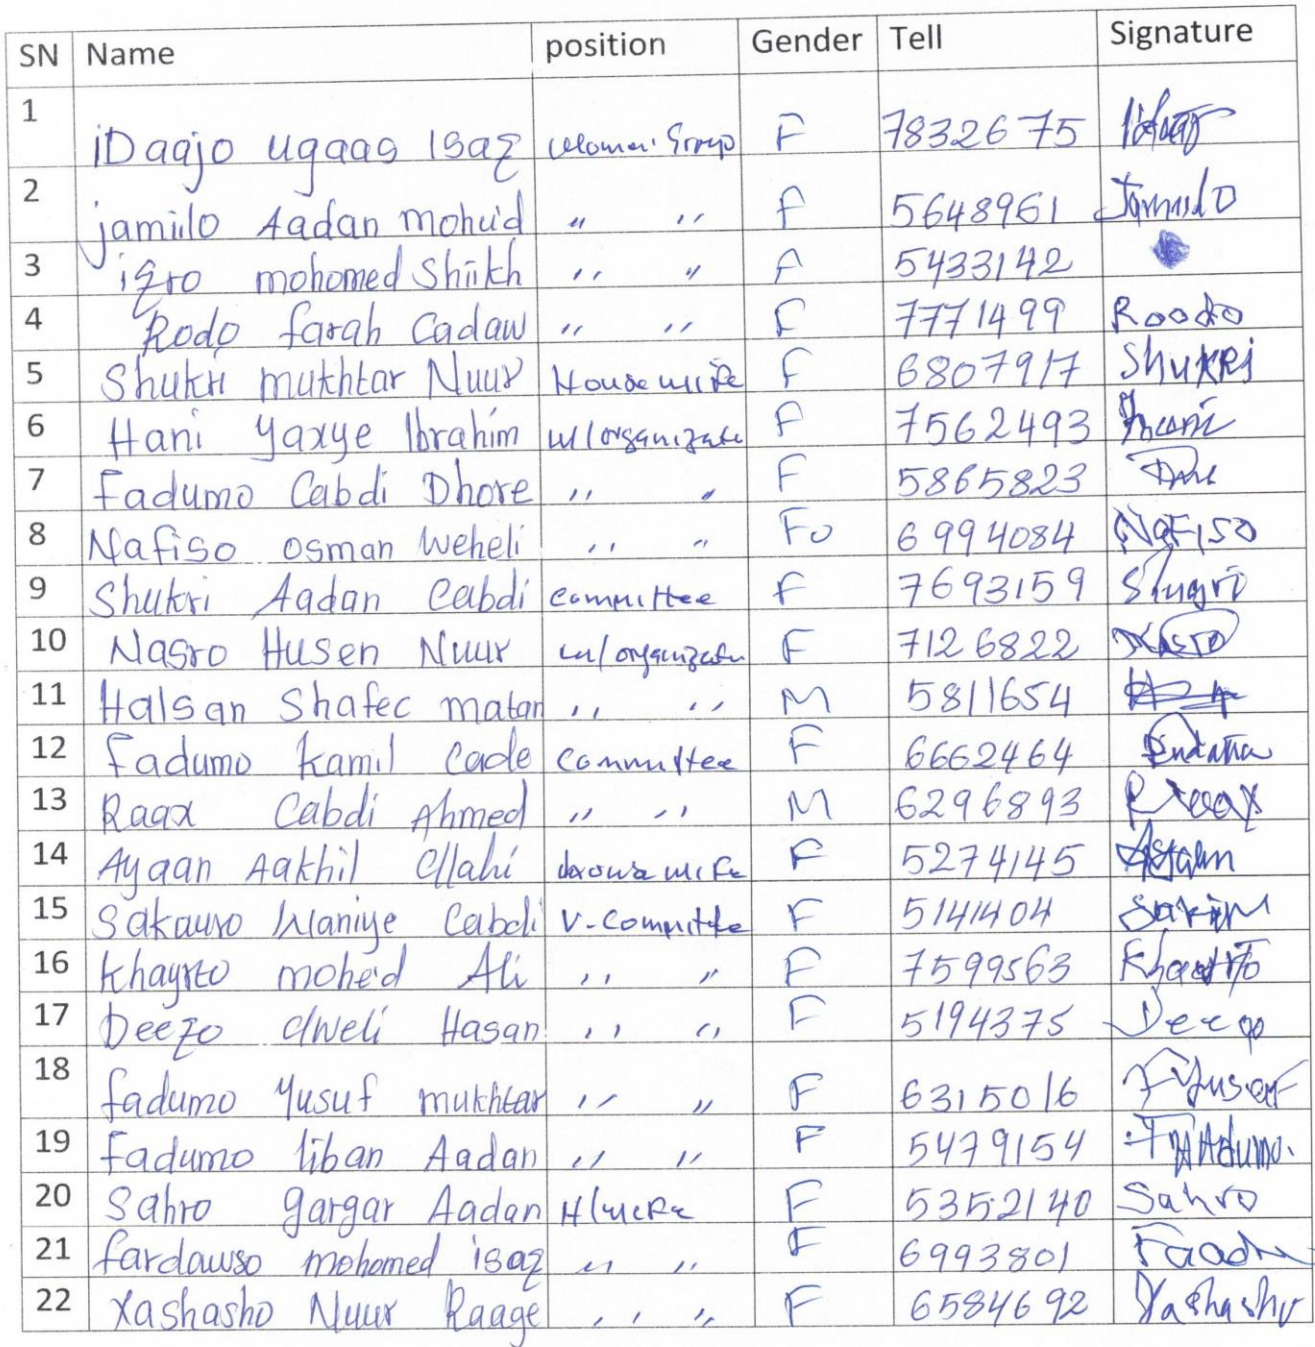 SN Name position Gender Tell Signature
1 iDaajo ugaas Isaq women Group F 7832675
2 jamiilo Aadan Mohuid " " F 5648961 Jamiilo
3 iqro mohomed Shiikh " " F 5433142
4 Rodo farah Cadaw " " F 7771499 Roodo
5 Shukri mukhtar Nuur House wife F 6807917 SHUKRI
6 Hani Yaxye Ibrahim w/organizate F 7562493 Hani
7 Fadumo Cabdi Dhore " " F 5865823
8 Nafiso osman weheli " " Fo 6994084 NaFiSO
9 Shukri Aadan Cabdi committee F 7693159 Shugri
10 Nasro Husen Nuur w/organizatn F 7126822 Nasro
11 Halsan Shafec matan " " M 5811654
12 Fadumo kamil Cade Committee F 6662464
13 Raax Cabdi Ahmed " " M 6296893 Raax
14 Ayaan Aakhil Ellahi F 5274145
15 Sakawro Waniye Cabdi V-Committe F 5141404
16 Khayrto mohe'd Ali " " F 7599563
17 Deeqo Cweli Hasan " " F 5194375 Deeqo
18 fadumo Yusuf mukhtar " " F 6315016 F Yusuf
19 Fadumo liban Aadan " " F 5479154 FAAdumo.
20 Sahro gargar Aadan H/wife F 5352140 Sahro
21 fardawso mohomed isaq " " F 6993801
22 Xashasho Nuur Raage " " F 6584692 Xashasho